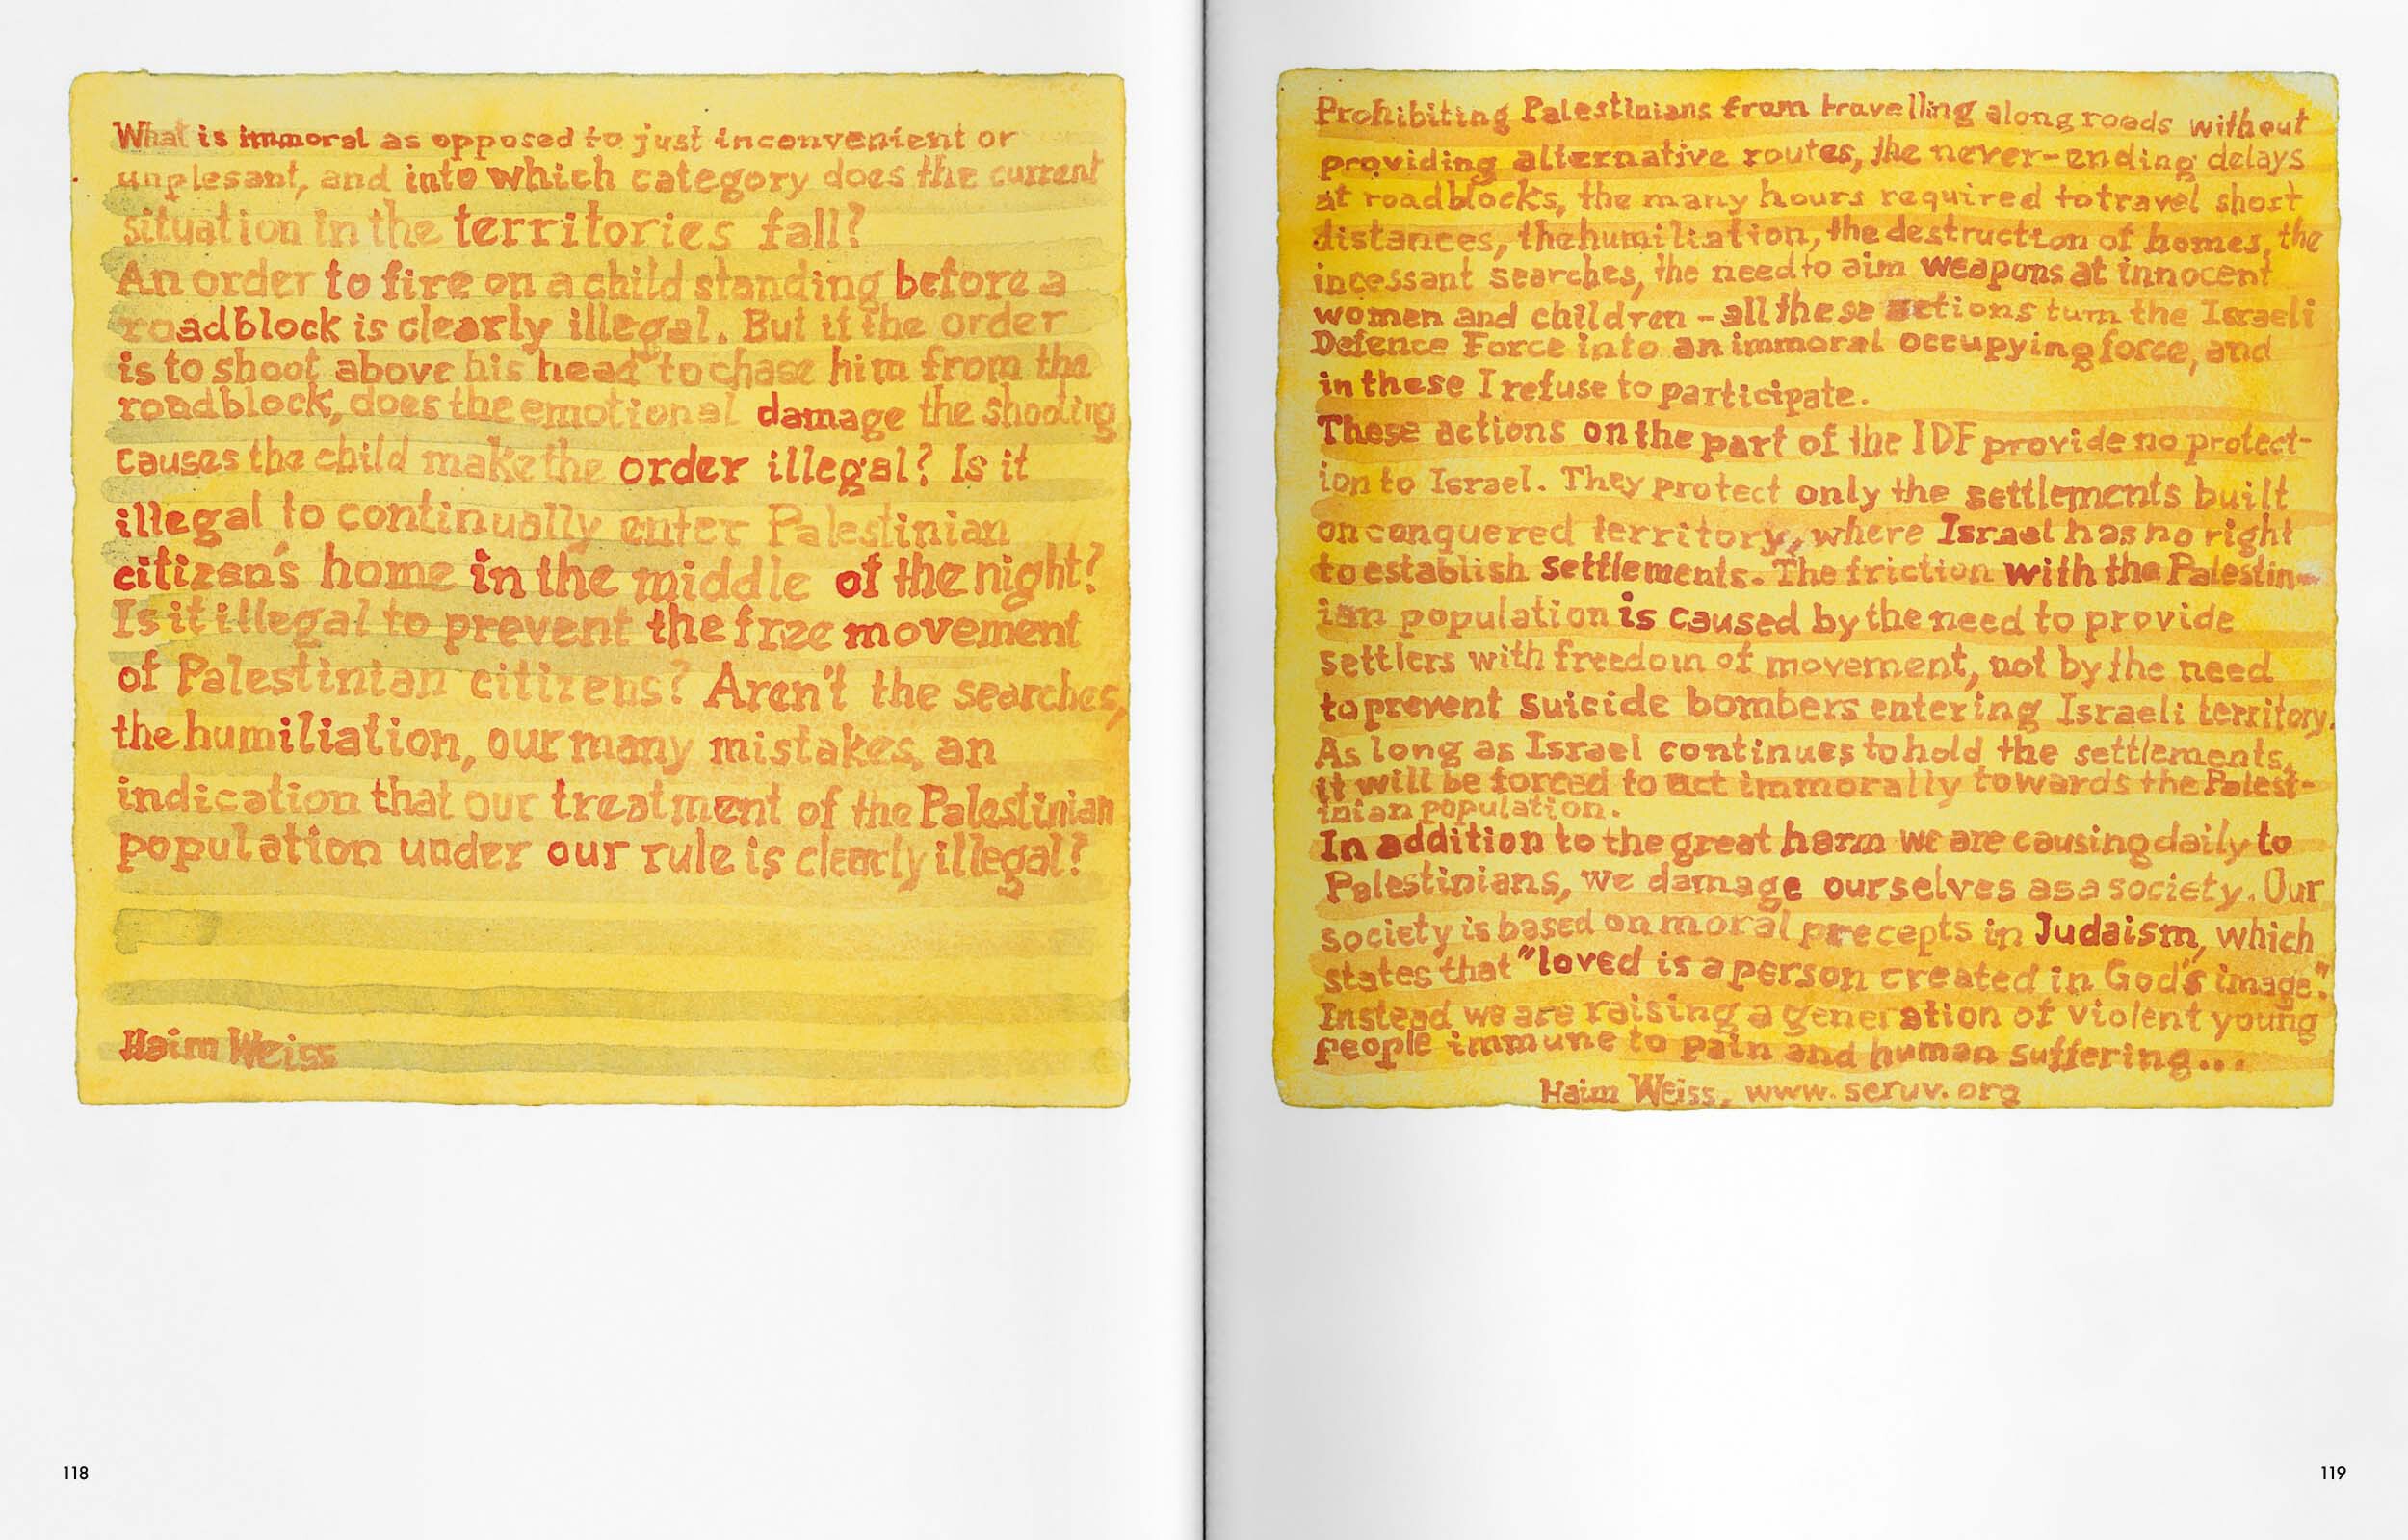 What is immoral as opposed to just inconvenient or
unplesant, and into which category does the current
situation in the territories fall?
An order to fire on a child standing before a
roadblock is clearly illegal. But if the order
is to shoot above his head to chase him from the
roadblock, does the emotional damage the shooting
causes the child make the order illegal? Is it
illegal to continually enter Palestinian
citizen's home in the middle of the night?
Is it illegal to prevent the free movement
of Palestinian citizens? Aren't the searches,
the humiliation, our many mistakes, an
indication that our treatment of the Palestinian
population under our rule is clearly illegal?
Haim Weiss
118
Prohibiting Palestinians from travelling along roads without
providing alternative routes, the never-ending delays
at roadblocks, the many hours required to travel short
distances, the humiliation, the destruction of homes, the
incessant searches, the need to aim weapons at innocent
women and children - all these actions turn the Israeli
Defence Force into an immoral occupying force, and
in these I refuse to participate.
These actions on the part of the IDF provide no protect-
ion to Israel. They protect only the settlements built
on conquered territory, where Israel has no right
to establish settlements. The friction with the Palestin-
ian population is caused by the need to provide
settlers with freedom of movement, not by the need
to prevent suicide bombers entering Israeli territory.
As long as Israel continues to hold the settlements,
it will be forced to act immorally towards the Palest-
inian population.
In addition to the great harm we are causing daily to
Palestinians, we damage ourselves as a society. Our
society is based on moral precepts in Judaism, which
states that "loved is a person created in God's image".
Instead we are raising a generation of violent young
people immune to pain and human suffering...
Haim Weiss, www.seruv.org
119